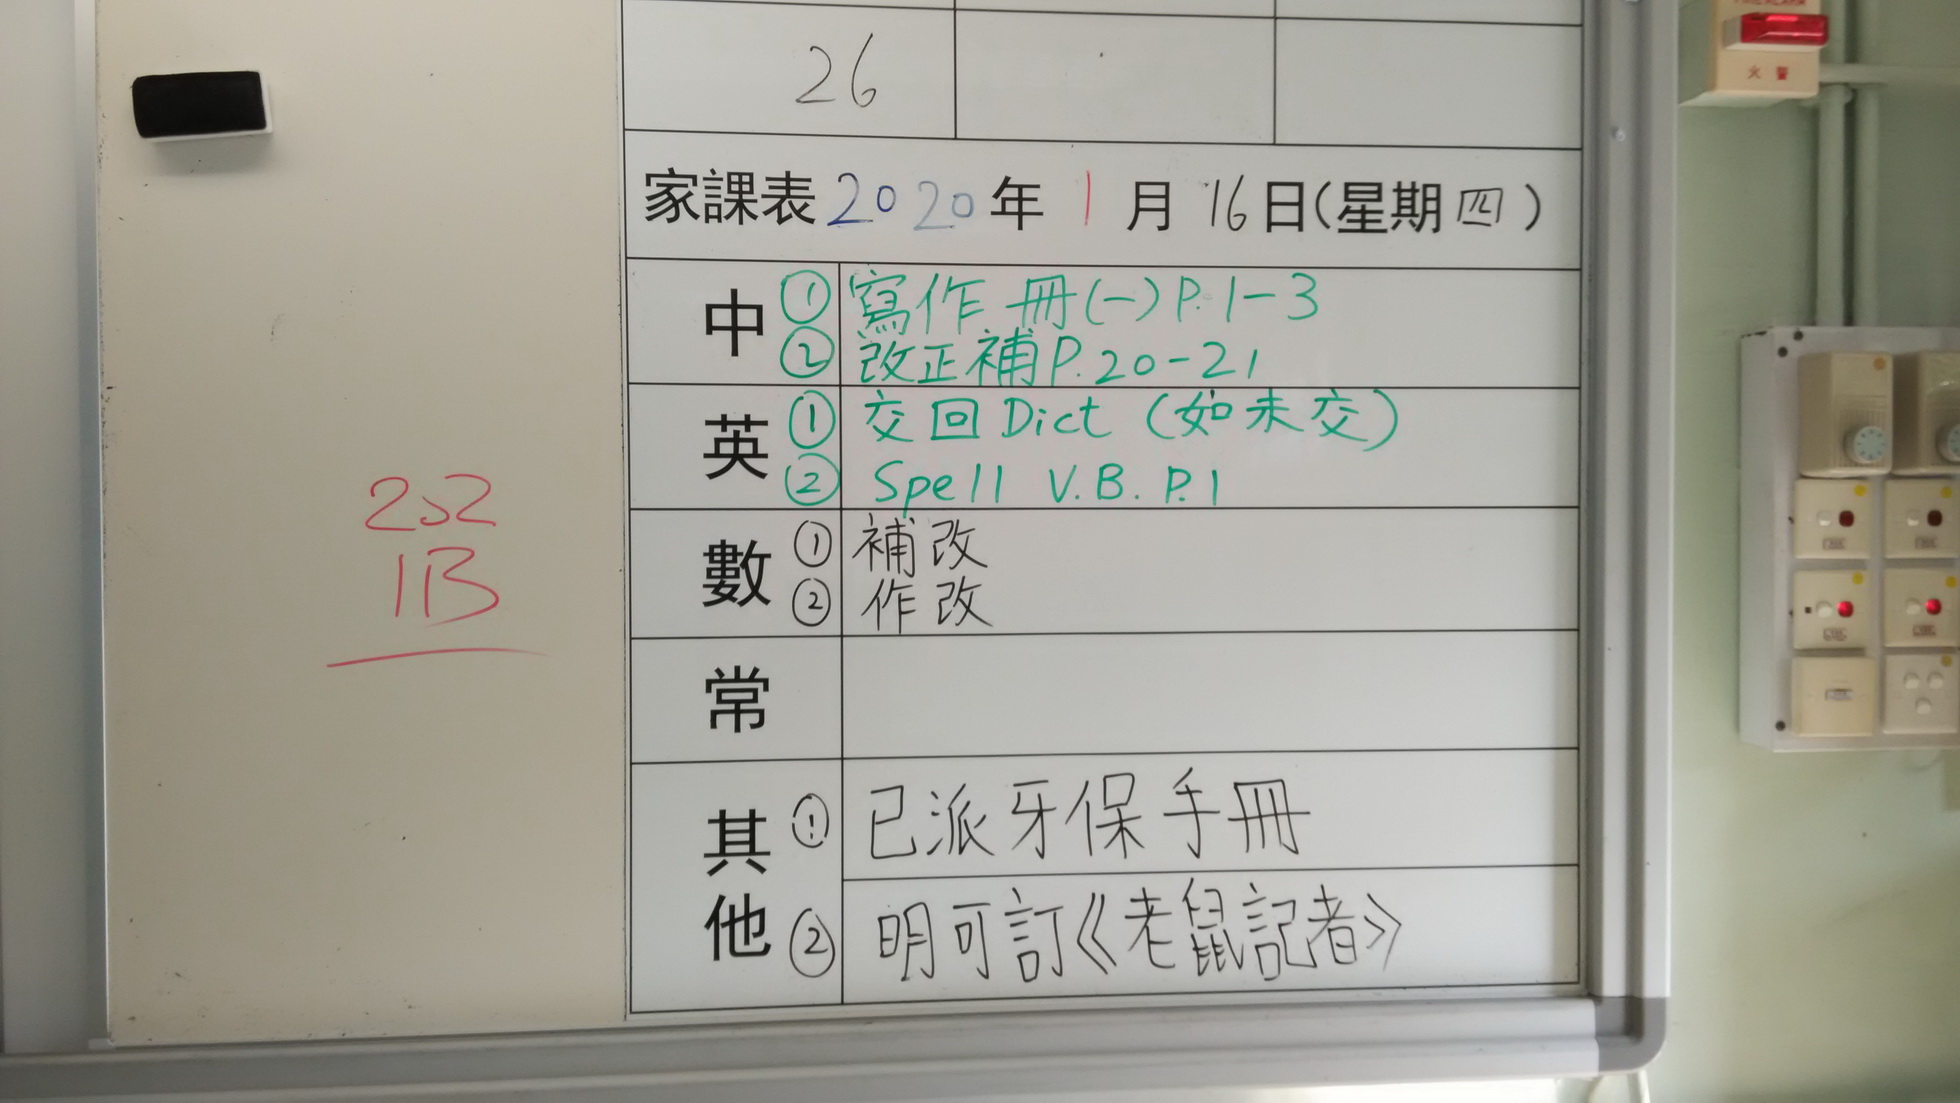 26
家課表2020年1月16日(星期四)
中 ① 寫作冊(一)P.1-3
② 改正補P.20-21
英 ① 交回Dict (如未交)
② Spell V.B. P.1
數 ① 補改
② 作改
常
其他 ① 已派牙保手冊
② 明可訂《老鼠記者》
202
1B
火警